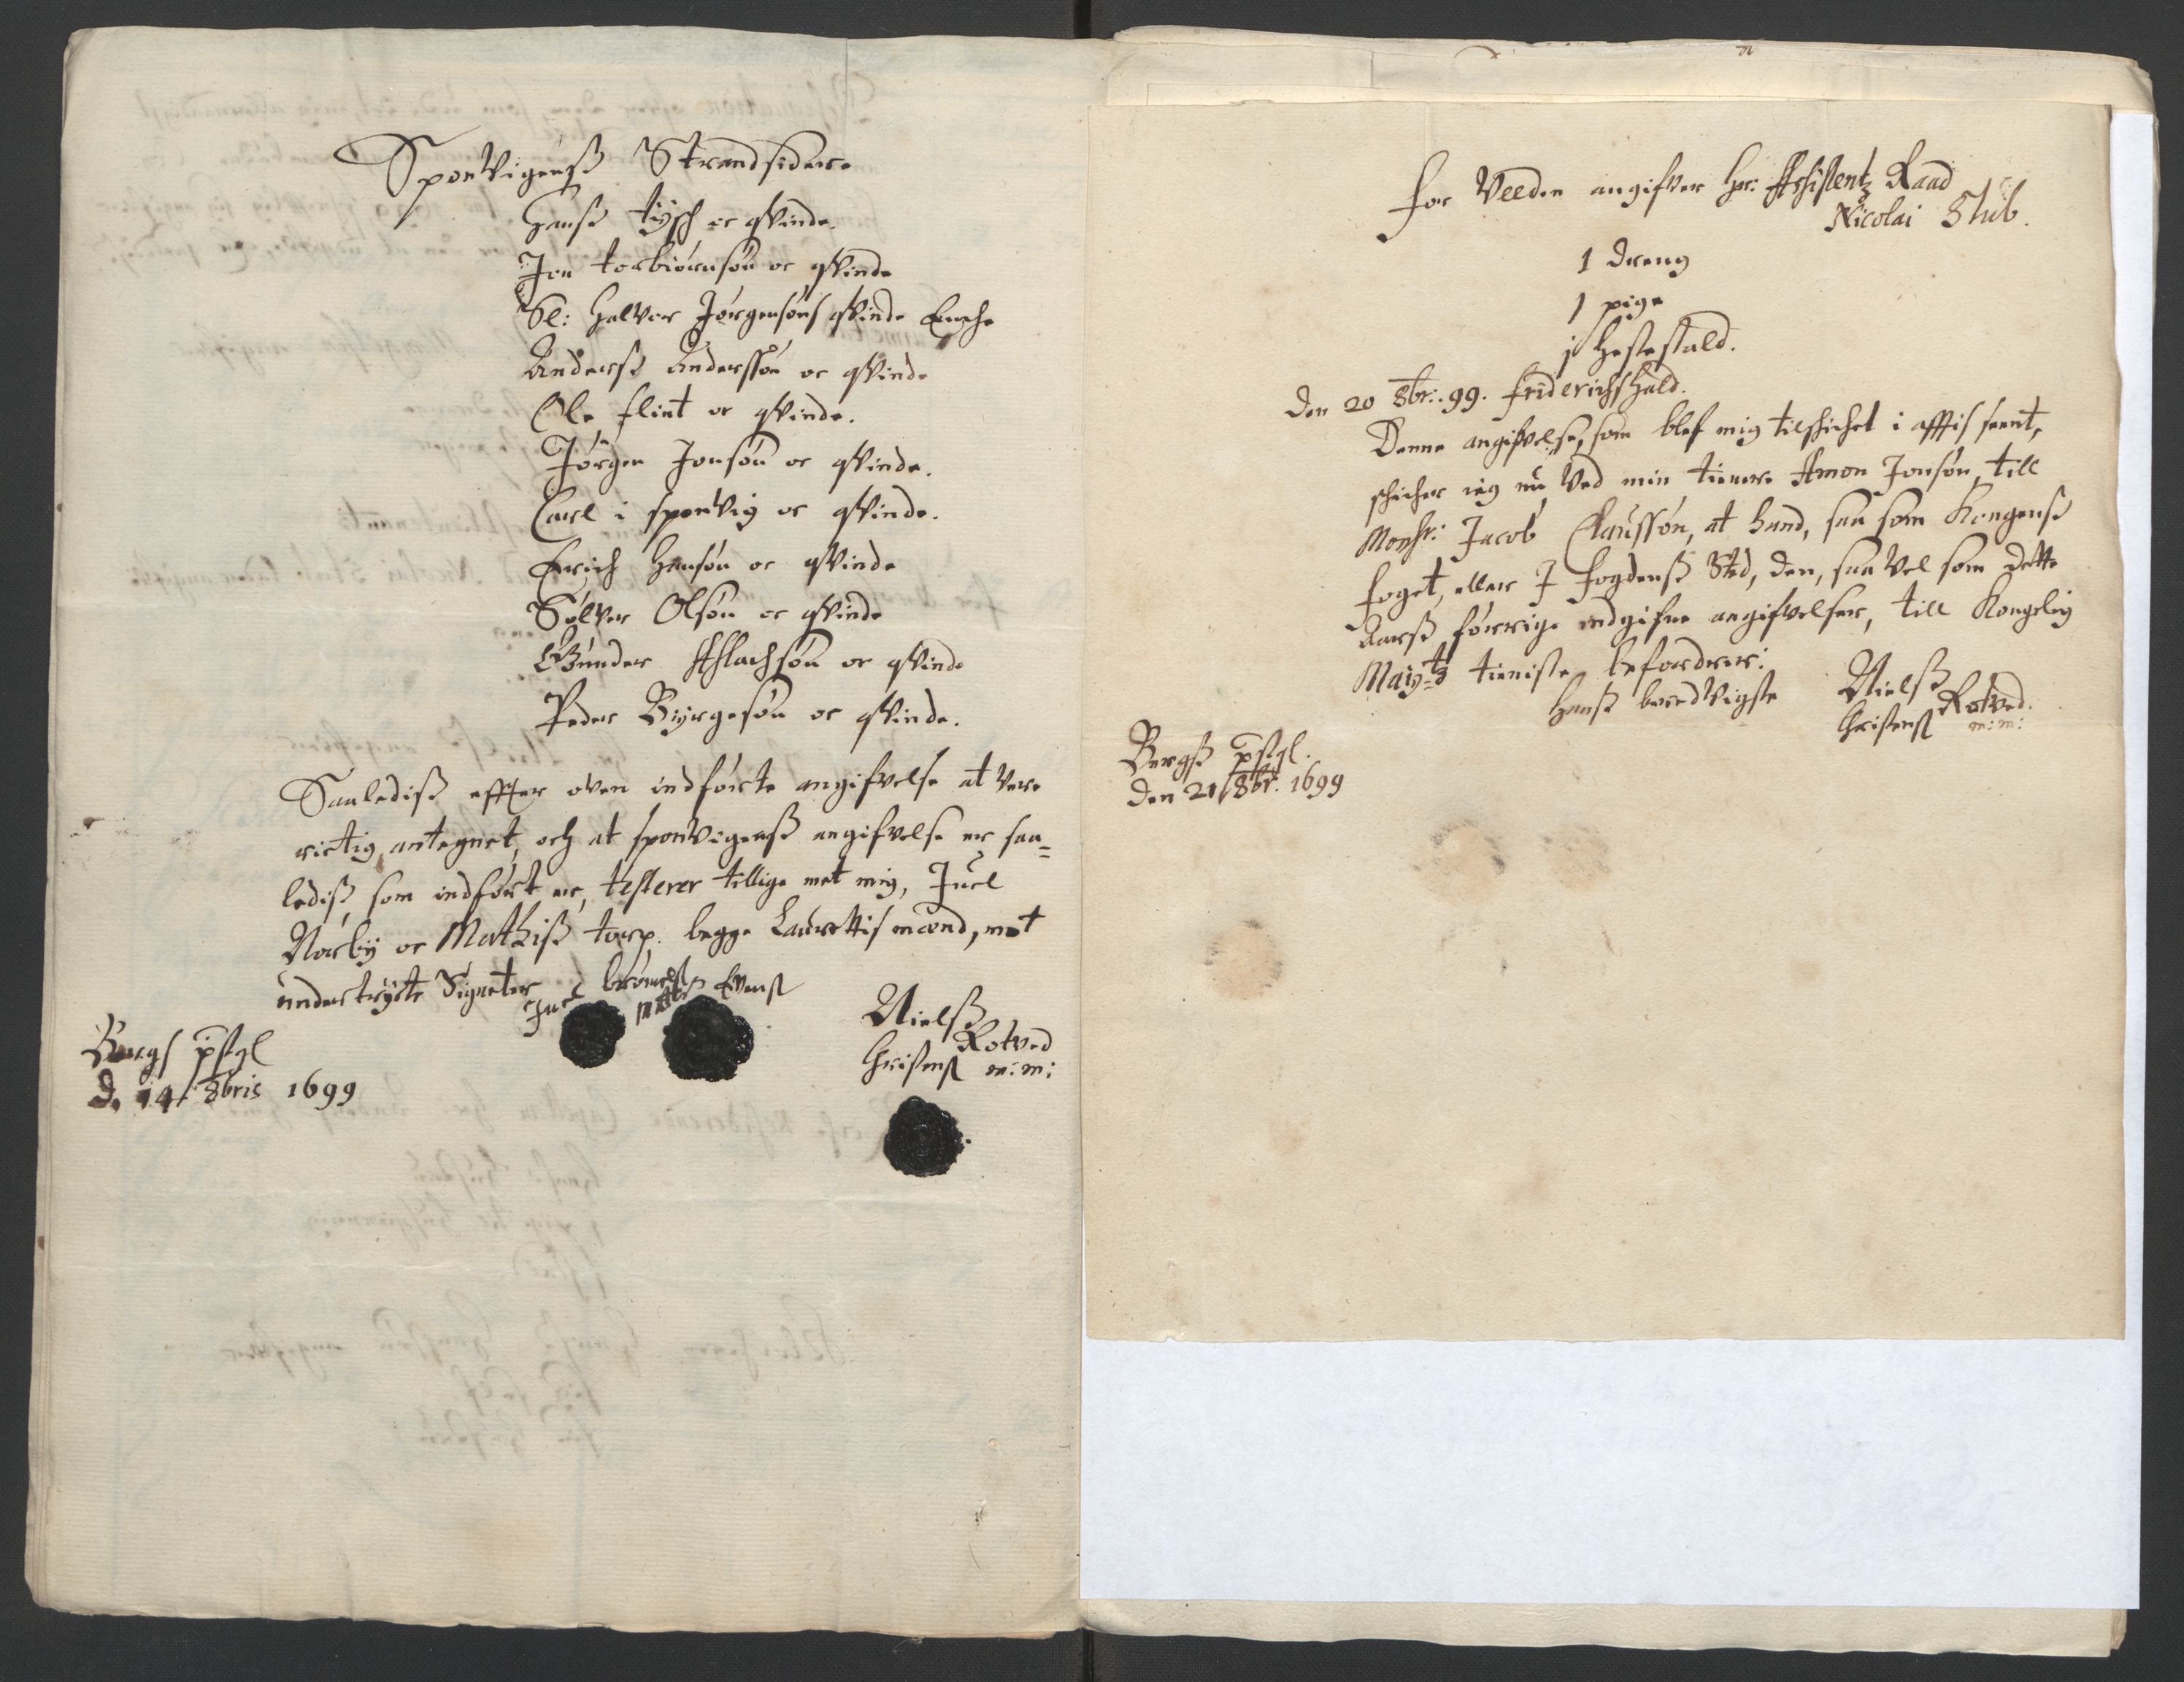 Sponvigenß Strandsidere
Hanß tÿsch oc qvinde.
Jon torbiörnsön oc qvinde
Sl: Halvor Jörgensöns qvinde Enche
Anderß Anderssön oc qvinde
Ole flint oc qvinde.
Jörgen Jonsön oc qvinde.
Carl i sponvig oc qvinde.
Erich Hansön oc qvinde
Sölver Olsön oc qvinde
Gunder Aslachsön oc qvinde
Peder Byrgesön oc qvinde.
Saalediß effter oven indförte angifvelse at vere
rictig antegnet, och at sponvigenß angifvelse er saa=
lediß, som indfört er, testerer tillige met mig, Juel
Norby oc Mathiß torp. begge Laurettis mænd, met
undertrÿcte Signeter
Nielß
Rotved
Christens m: m:
Bergs pstgl
D. 14 8bris 1699
for Veeden angifver Hr: Assistentz Raad
Nicolai Stub.
1 dreng
1 pige
1 Hestestald.
Den 20 8br: 99. friderichshald.
Denne angifvelse, som blef mig tilschichet i afftis seent,
schicher ieg nu ved min tienere Amon Jonsön, till
Monsr: Jacob Claussön, at hand, saa som Kongenß
foget, eller I fogdenß Sted, den, saa vel som dette
Aarß forrige indgifne angifvelser, till Kongelig
Maytz tieniste befordrer:
Hanß beredvigste
Nielß
Rotved.
Christens m: m:
Bergß pstgl.
den 21 8br. 1699